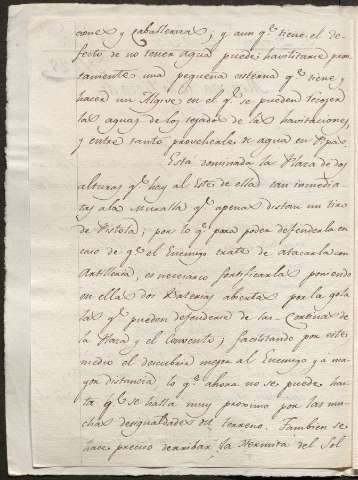 cones y Caballerias; y aunq.e tiene el de-
fecto de no tener agua puede havilitarse pron-
tamente una pequeña cisterna q.e tiene y
hacer un Algive en el q.e se pueden recojer
las aguas de los tejados de las havitaciones,
y entre tanto proveherle de agua en Pipas.
Esta dominada la Plaza de dos
alturas q.e hay al Este de ella tan inmedia-
tas a la Muralla q.e apenas distan un tiro
de Pistola; por lo q.e para poder defenderla en
caso de q.e el Enemigo trate de atacarla con
Artilleria, es necesario fortificarla poniendo
en ellas dos Baterias abiertas por la gola
las q.e pueden defenderse de las Cortinas de
la Plaza y el Convento; facilitando por este
medio el descubrir mejor al Enemigo y a ma-
yor distancia, lo q.e ahora no se puede has-
ta q.e se halla muy proximo por las mu-
chas desigualdades del terreno. Tambien se
hace preciso derribar la Hermita del Sol